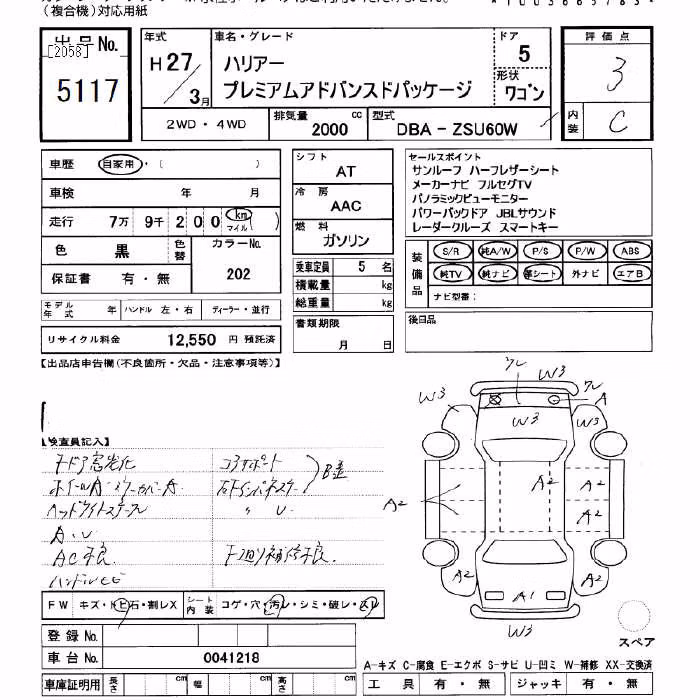 (複合機)対応用紙
出品No.
[2058]
5117
年式
H27/3月
車名・グレード
ハリアー
プレミアムアドバンスドパッケージ
ドア
5
形状
ワゴン
評価点
3
内装
C
2WD・4WD
排気量 2000 cc
型式 DBA - ZSU60W
車歴 自家用・( )
車検 年 月
走行 7万 9千 200 km マイル ( )
色 黒 色替
カラーNo. 202
保証書 有・無
モデル年式 年 ハンドル 左・右 ディーラー・並行
リサイクル料金 12,550 円 預託済
シフト
AT
冷房
AAC
燃料
ガソリン
乗車定員 5 名
積載量 kg
総重量 kg
書類期限
月 日
セールスポイント
サンルーフ ハーフレザーシート
メーカーナビ フルセグTV
パノラミックビューモニター
パワーバックドア JBLサウンド
レーダークルーズ スマートキー
装備品
S/R 純A/W P/S P/W ABS
純TV 純ナビ 革シート 外ナビ エアB
ナビ型番:
後日品
【出品店申告欄(不良箇所・欠品・注意事項等)】
【検査員記入】
コアサポート
B差
A.U
AC不良
下廻り補修不良
FW キズ・トビ石・割レX
シート内装 コゲ・穴・汚レ・シミ・破レ・スレ
登録No.
車台No. 0041218
車庫証明用 長さ cm 幅 cm 高さ cm
ワレ
W3
W3
ワレ
A
W3
W3
A2
A2
A2
A2
A2
A2
A1
W3
スペア
A-キズ C-腐食 E-エクボ S-サビ U-凹ミ W-補修 XX-交換済
工具 有・無 ジャッキ 有・無